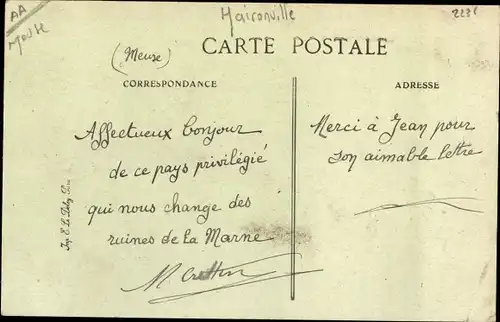 AA
Meuse
Haironville
223
(Meuse)
CARTE POSTALE
CORRESPONDANCE
ADRESSE
Affectueux bonjour
de ce pays privilégié
qui nous change des
ruines de la Marne
Merci à Jean pour
son aimable lettre
Imp. E. Le Deley, Paris